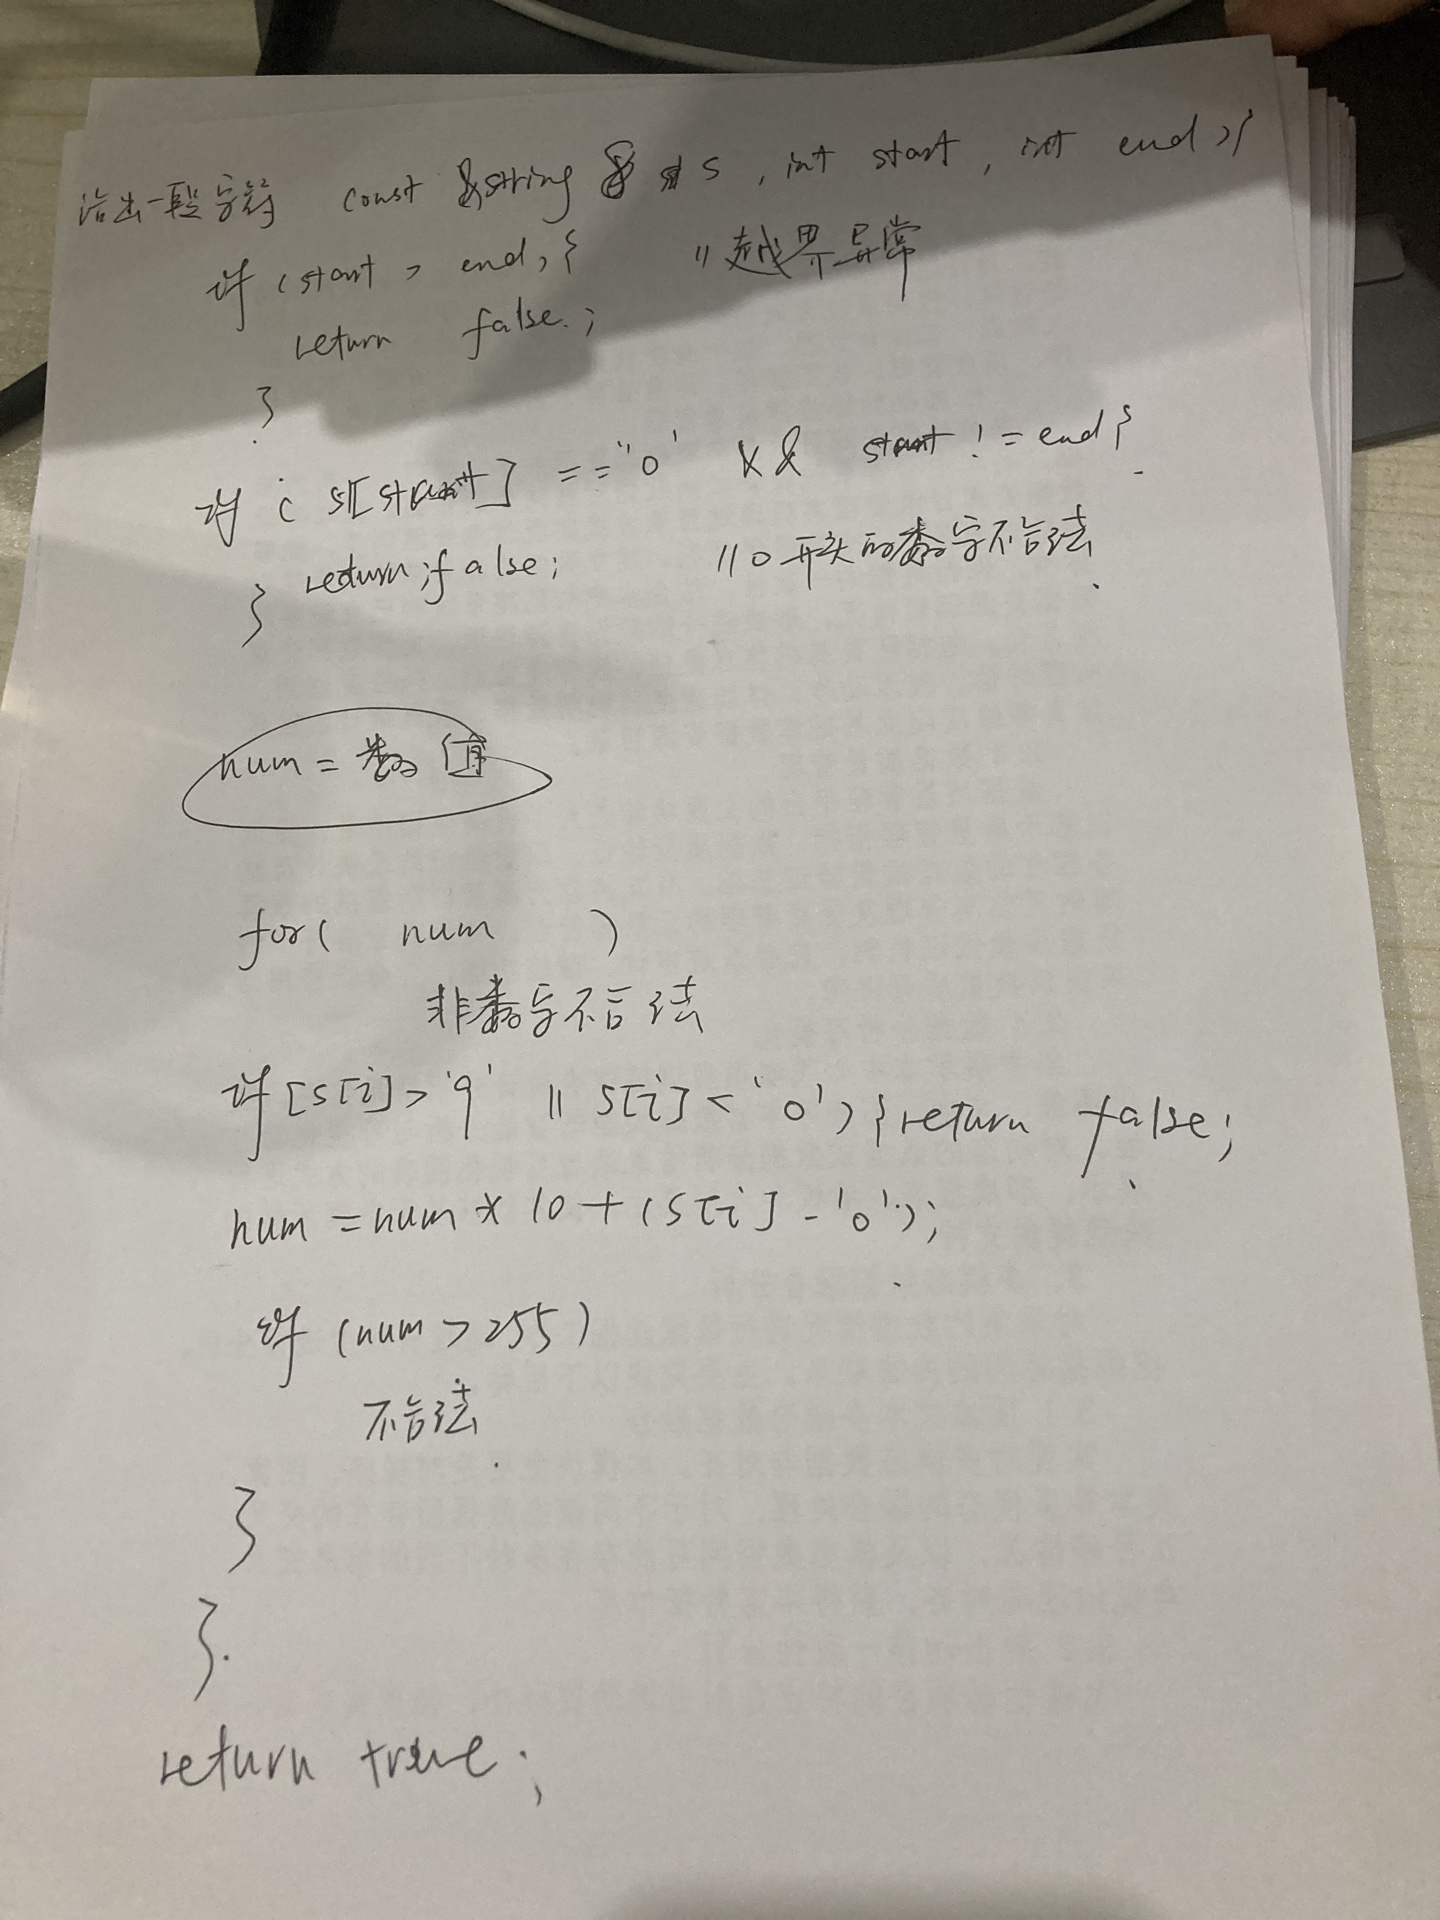 给出一段字符 const &string & s , int start , int end ) {
if ( start > end ) { // 越界异常
return false ;
}
if ( s[start] == '0' && start != end {
return ; false ; // 0开头的数字不合法
}
num = 数值
for ( num )
非数字不合法
if [ s[i] > '9' || s[i] < '0' ) { return false ;
num = num * 10 + ( s[i] - '0' ) ;
if ( num > 255 )
不合法
}
}
return true ;